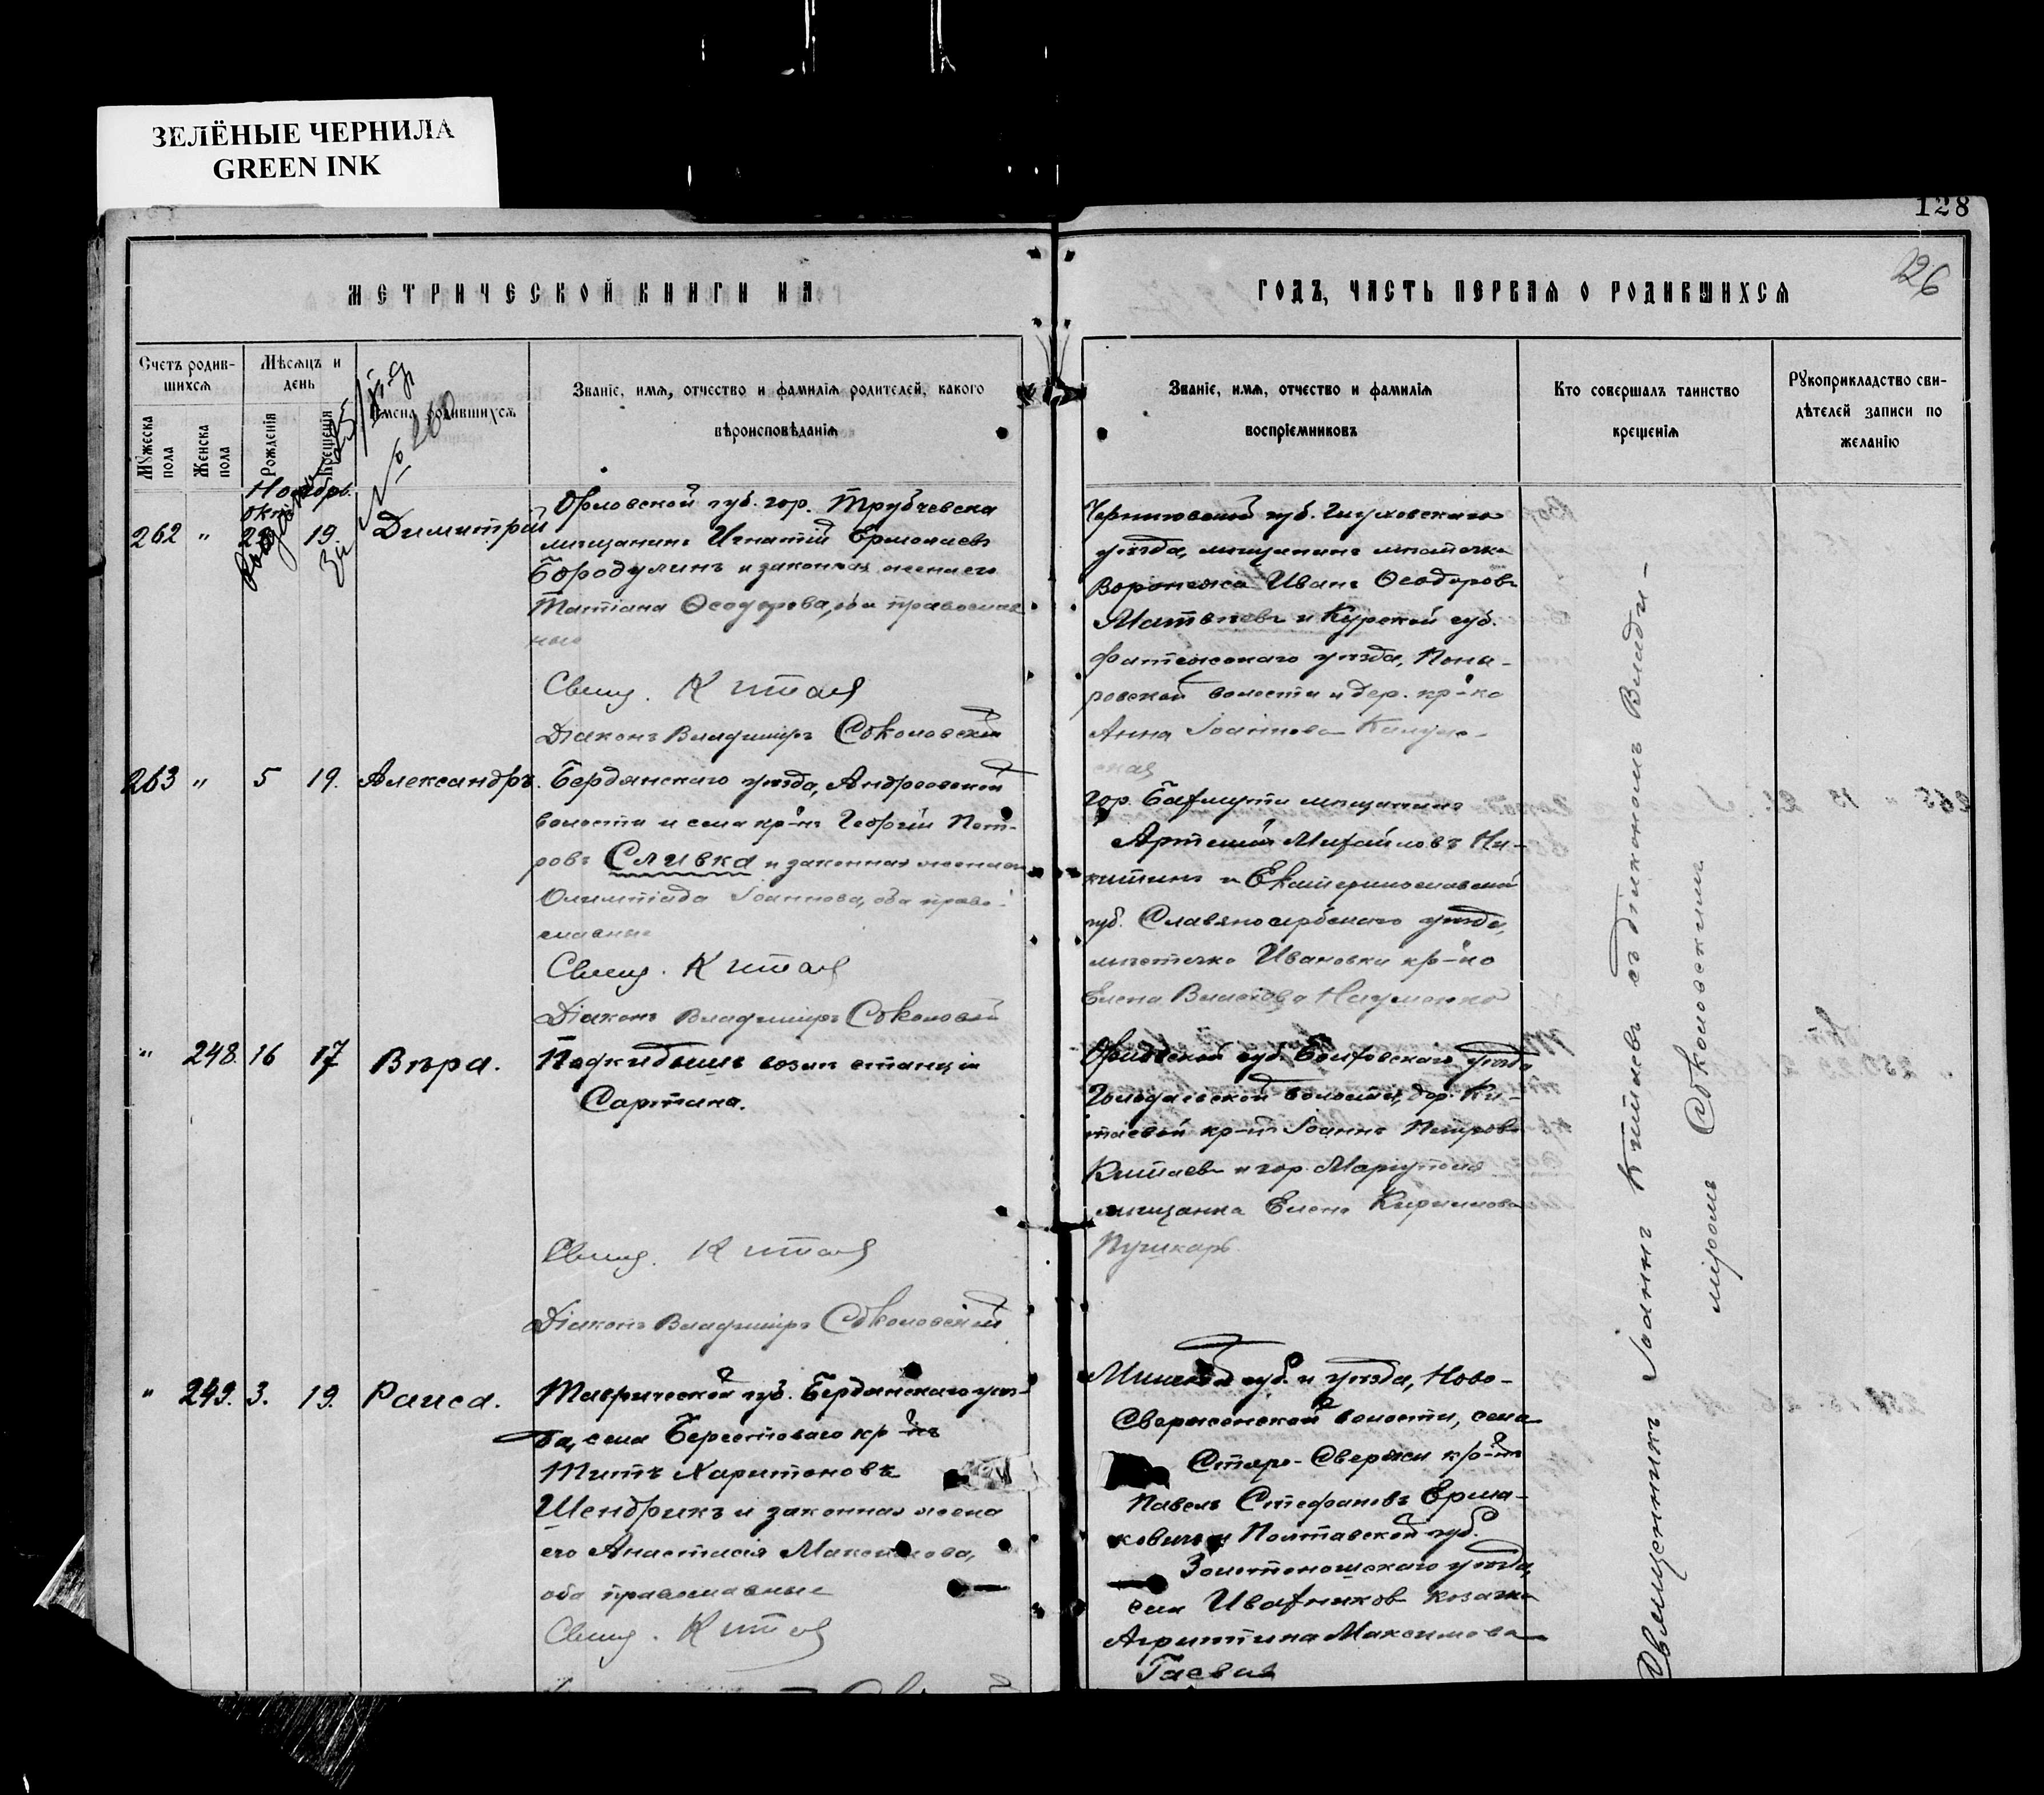 ЗЕЛЁНЫЕ ЧЕРНИЛА
GREEN INK
128
226
МЕТРИЧЕСКОЙ КНИГИ НА
ГОДЪ, ЧАСТЬ ПЕРВАЯ О РОДИВШИХСЯ
Счетъ родив-
шихся
Мужеска пола
Женска пола
Мѣсяцъ и
день
Рожденія
Крещенія
Имена родившихся
Званіе, имя, отчество и фамилія родителей, какого
вѣроисповѣданія
Званіе, имя, отчество и фамилія
воспріемниковъ
Кто совершалъ таинство
крещенія
Рукоприкладство сви-
дѣтелей записи по
желанію
№ 260
Ноябрь
окт.
262 " 19. Димитрій
Орловской губ. гор. Трубчевска
мѣщанинъ Игнатій Ермолаевъ
Бородулинъ и законная жена его
Татіана Ѳеодорова, оба православ
ные
Свящ. Китаев
Діаконъ Владиміръ Соколовскій
Черниговской губ. Глуховскаго
уѣзда, мѣщанинъ мѣстечка
Воронежа Иванъ Ѳеодоровъ
Матвѣевъ и Курской губ.
Фатежскаго уѣзда, Поны-
ровской волости и дер. кр-ка
Анна Іоаннова
263 " 5 19. Александръ.
Бердянскаго уѣзда, Андреевской
волости и села кр-нъ Георгій Пет-
ровъ Сливка и законная жена его
Олимпіада Іоаннова, оба право-
славные
Свящ. Китаев
Діаконъ Владиміръ Соколовскій
гор. Бахмута мѣщанинъ
Артемій Михайловъ Ни-
китинъ и Екатеринославской
губ. Славяносербскаго уѣзда,
мѣстечка Ивановки кр-ка
Елена Власова Науменко
" 248. 16 17 Вѣра.
Подкидышъ возлѣ станціи
Сартана.
Свящ. Китаев
Діаконъ Владиміръ Соколовскій
Орловской губ. Болховскаго уѣзда
волости, дер. Ки-
таевой кр-нъ Іоаннъ Петровъ
Китаевъ и гор. Маріуполя
мѣщанка Елена Кириллова
Пушкарь
" 249. 3. 19. Раиса.
Таврической губ. Бердянскаго уѣз-
да, села Берестоваго кр-нъ
Титъ Харитоновъ
Шендрикъ и законная жена
его Анастасія Максимова,
оба православные
Свящ. Китаев
Минской губ. и уѣзда, Ново-
Сверженской волости, села
Старо-Свержня кр-нъ
Павелъ Стефановъ Ерма-
ковичъ и Полтавской губ.
Золотоношскаго уѣзда,
села Ивахниковъ козачка
Агриппина Максимова
Гаевая
Священникъ Іоаннъ Китаевъ съ діакономъ Влади-
міромъ Соколовскимъ